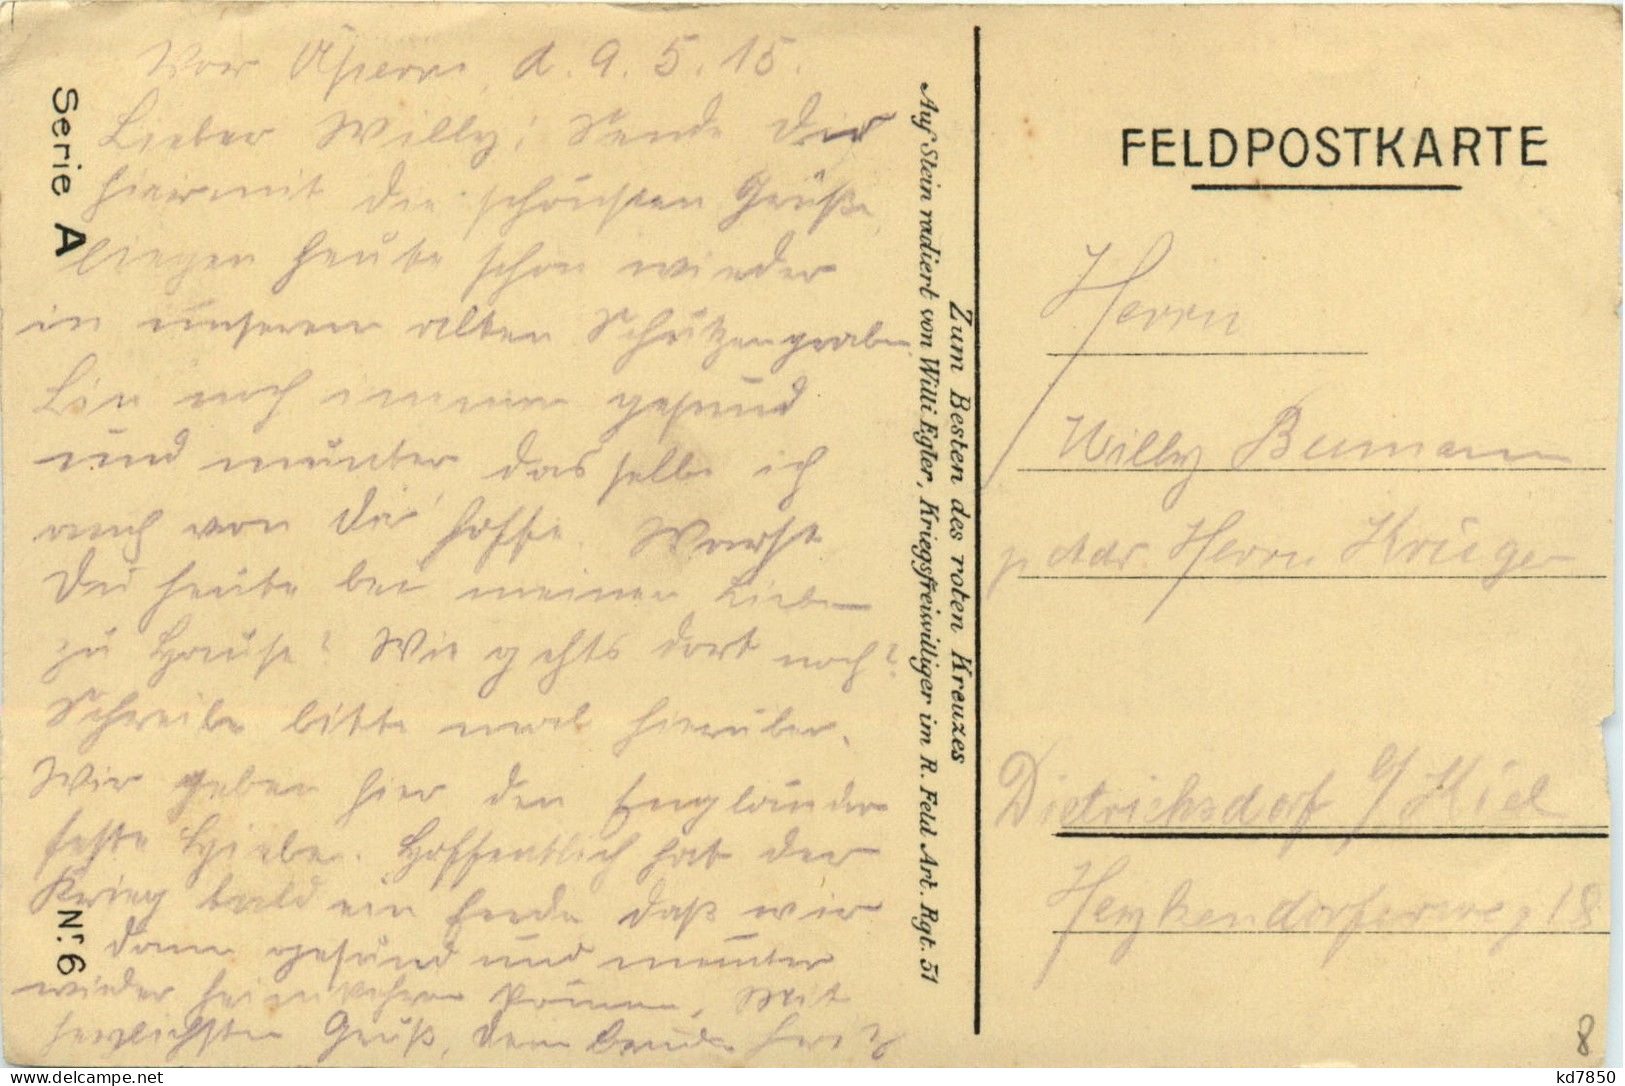 Vor Ypern, d. 9. 5. 15.
Lieber Willy! Sende Dir
hiermit die schönsten Grüße,
liegen heute schon wieder
in unserem alten Schützengraben
Bin noch immer gesund
und munter dasselbe ich
auch von Dir hoffe. Warst
Du heute bei meinen Lieben
zu Hause? Wie gehts dort noch?
Schreibe bitte mal hierüber.
Wir geben hier den Engländer
feste Hiebe. Hoffentlich hat der
Krieg bald ein Ende daß wir
dann gesund und munter
wieder heimkehren können. Mit
herzlichsten Gruß, dein Bruder Fritz
Serie A
Nr. 6
Zum Besten des roten Kreuzes
Auf Stein radiert von Willi Egler, Kriegsfreiwilliger im R. Feld Art. Rgt. 51
FELDPOSTKARTE
Herrn
Willy Bumann
p. Adr. Herrn Krüger
Dietrichsdorf b/ Kiel
Heykendorferweg 18
8
kd7850